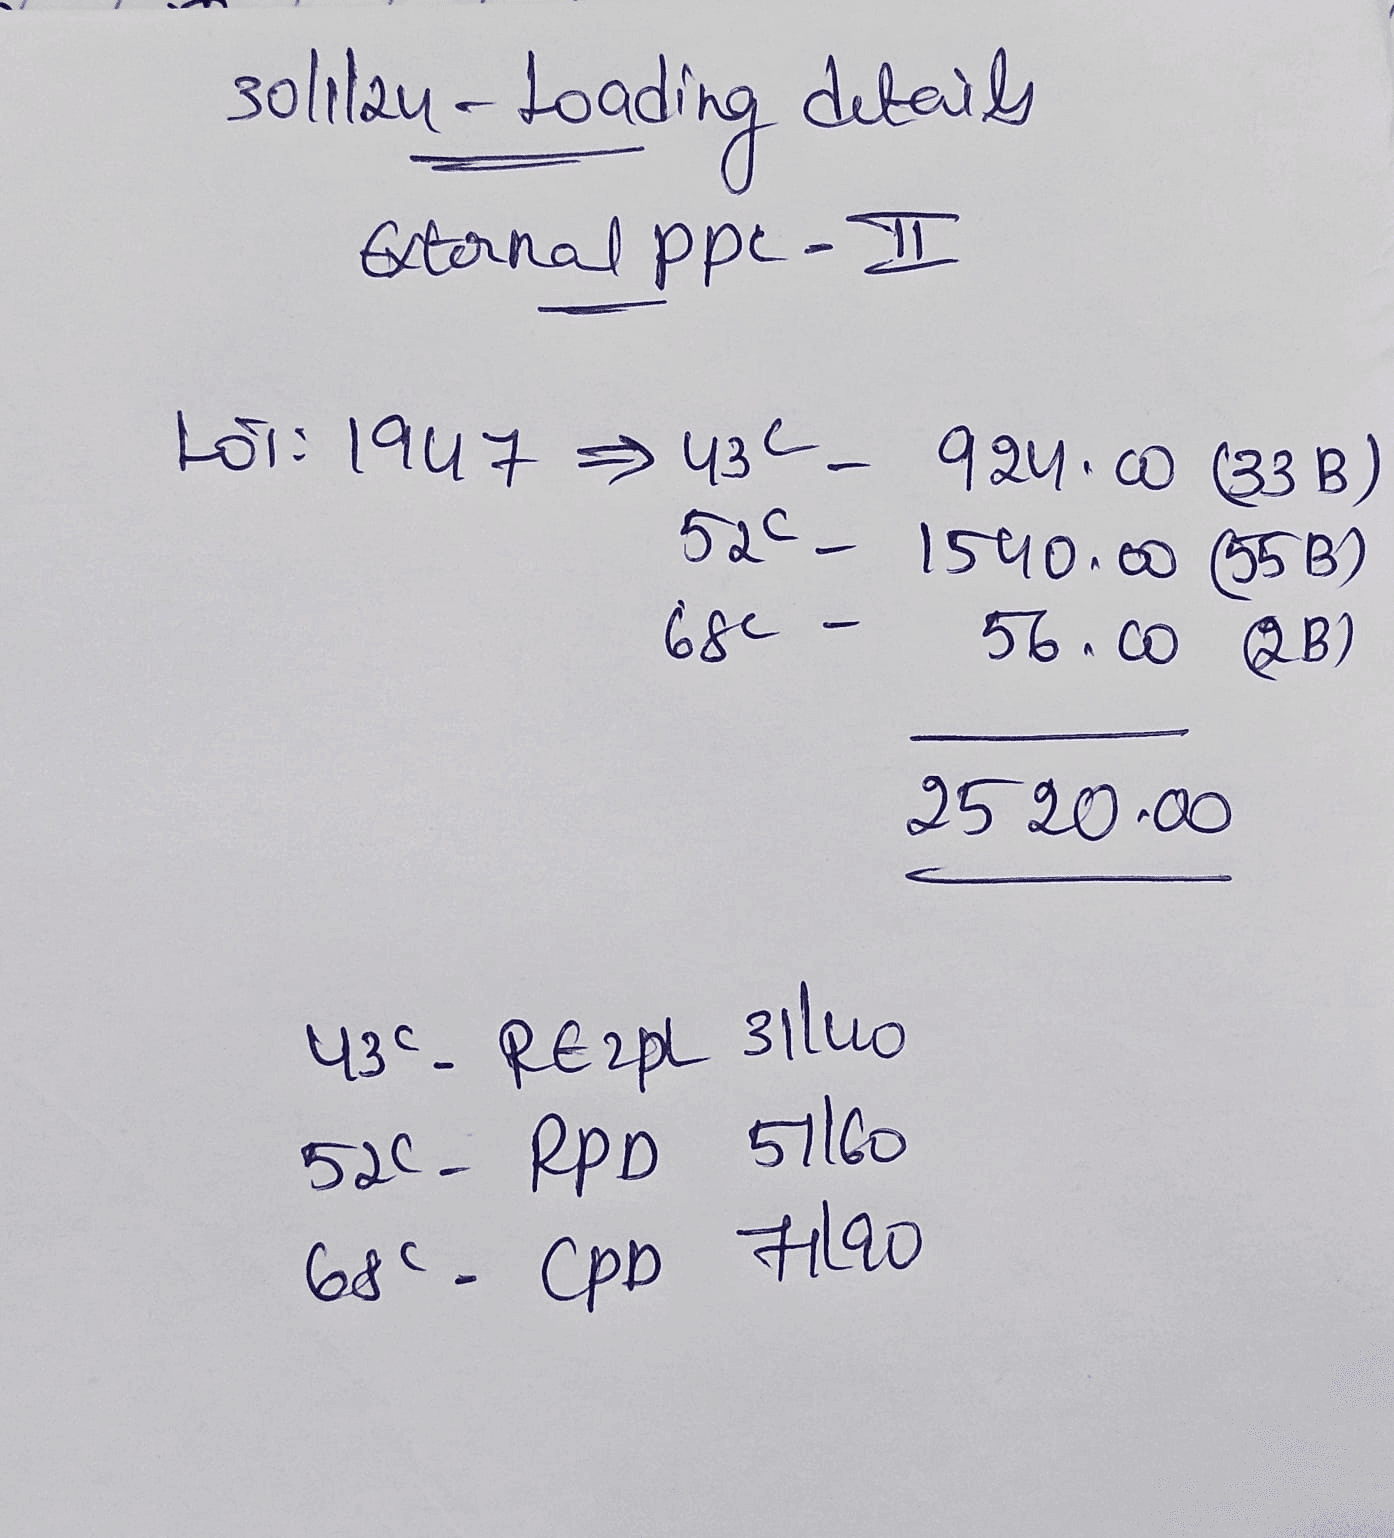 30/1/24 - Loading details
External ppc - II
Lot: 1947 ⇒ 43c - 924.00 (33 B)
52c - 1540.00 (55 B)
68c - 56.00 (2B)
2520.00
43c - RE2pl 31/40
52c - RPD 51/60
68c - CPD 71/90